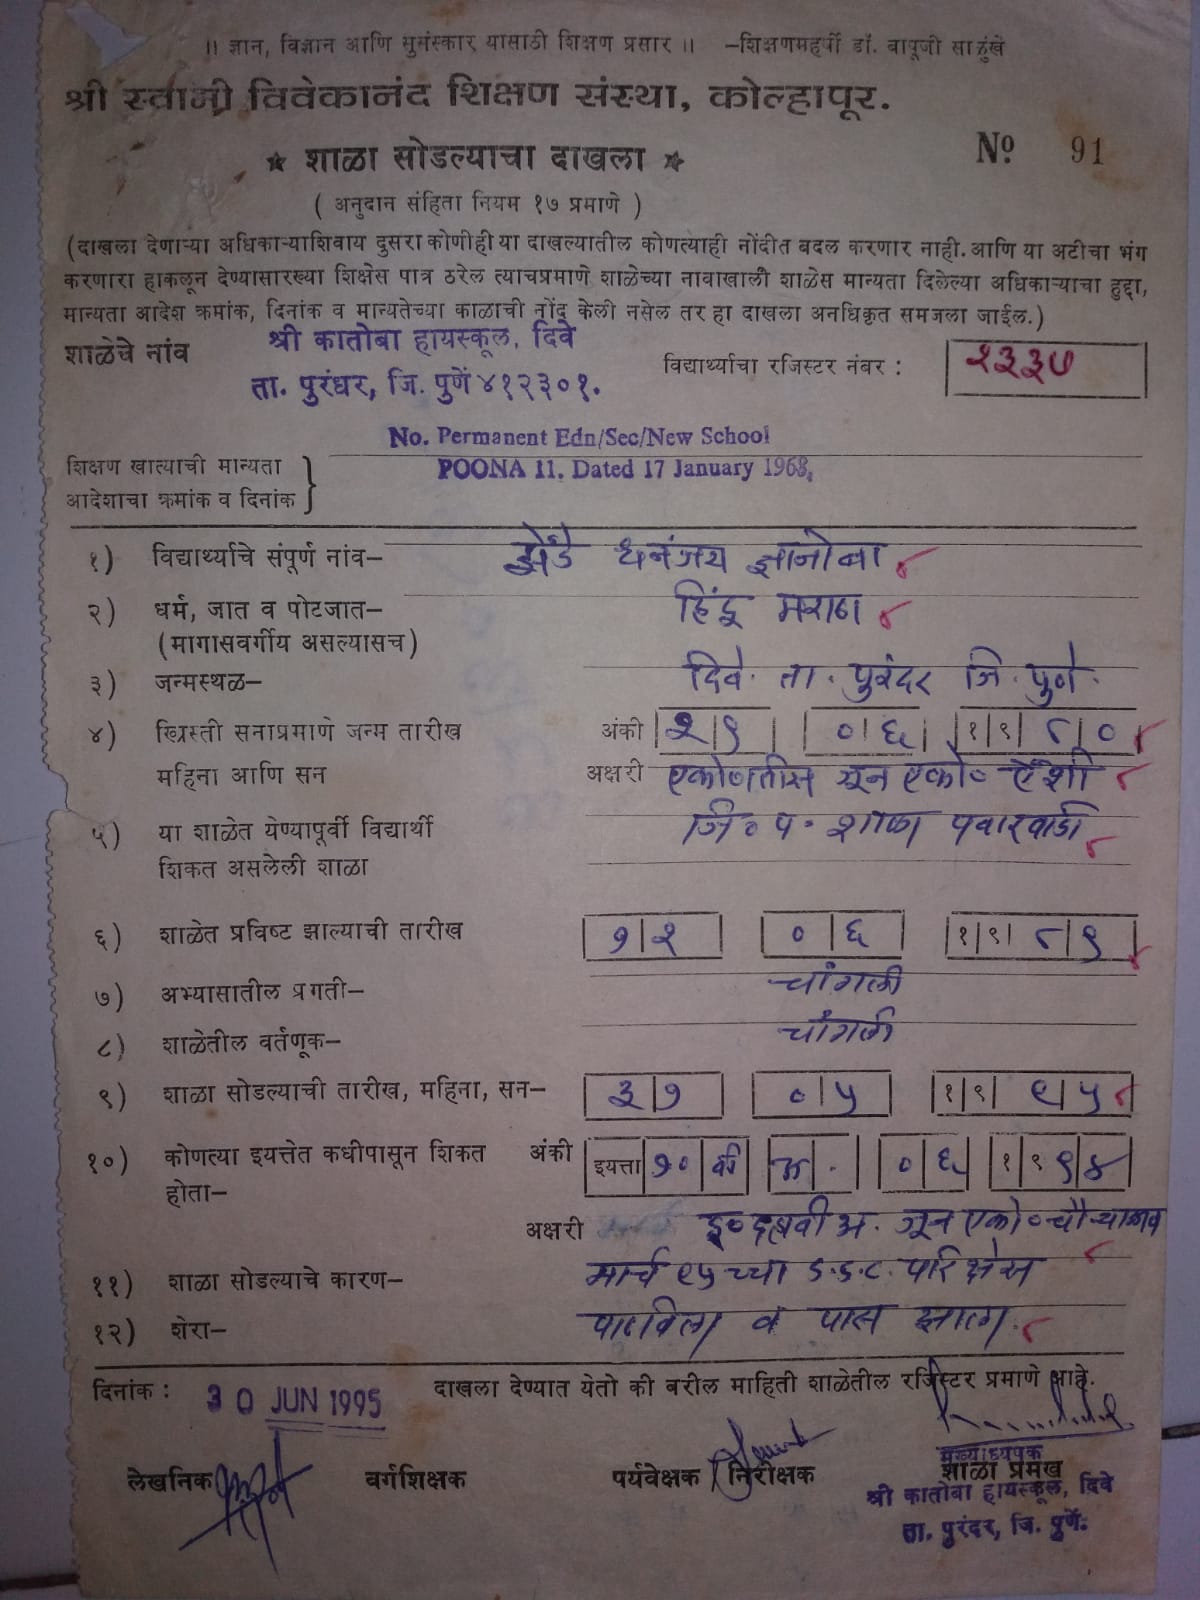 ।। ज्ञान, विज्ञान आणि सुसंस्कार यासाठी शिक्षण प्रसार ।। –शिक्षणमहर्षी डॉ. बापूजी साळुंखे
श्री स्वामी विवेकानंद शिक्षण संस्था, कोल्हापूर.
★ शाळा सोडल्याचा दाखला ★
No 91
( अनुदान संहिता नियम १७ प्रमाणे )
(दाखला देणाऱ्या अधिकाऱ्याशिवाय दुसरा कोणीही या दाखल्यातील कोणत्याही नोंदीत बदल करणार नाही. आणि या अटीचा भंग
करणारा हाकलून देण्यासारख्या शिक्षेस पात्र ठरेल त्याचप्रमाणे शाळेच्या नावाखाली शाळेस मान्यता दिलेल्या अधिकाऱ्याचा हुद्दा,
मान्यता आदेश क्रमांक, दिनांक व मान्यतेच्या काळाची नोंद केली नसेल तर हा दाखला अनधिकृत समजला जाईल.)
शाळेचे नांव श्री कातोबा हायस्कूल, दिवे
ता. पुरंधर, जि. पुणें ४१२३०१.
विद्यार्थ्याचा रजिस्टर नंबर : २३३७
No. Permanent Edn/Sec/New School
शिक्षण खात्याची मान्यता POONA 11. Dated 17 January 1968,
आदेशाचा क्रमांक व दिनांक
१) विद्यार्थ्याचे संपूर्ण नांव– झेंडे धनंजय ज्ञानोबा
२) धर्म, जात व पोटजात– हिंदू मराठा
(मागासवर्गीय असल्यासच)
३) जन्मस्थळ– दिवे. ता. पुरंदर जि. पुणे.
४) ख्रिस्ती सनाप्रमाणे जन्म तारीख अंकी २९ ०६ १९८०
महिना आणि सन अक्षरी एकोणतीस जून एको० ऐंशी
५) या शाळेत येण्यापूर्वी विद्यार्थी जि० प० शाळा पवारवाडी
शिकत असलेली शाळा
६) शाळेत प्रविष्ट झाल्याची तारीख १२ ०६ १९८९
७) अभ्यासातील प्रगती– चांगली
८) शाळेतील वर्तणूक– चांगली
९) शाळा सोडल्याची तारीख, महिना, सन– ३१ ०५ १९९५
१०) कोणत्या इयत्तेत कधीपासून शिकत अंकी इयत्ता १० वी अ. ०६ १९९४
होता–
अक्षरी इ० दहावी अ. जून एको० चौऱ्याण्णव
११) शाळा सोडल्याचे कारण– मार्च ९५ च्या S.S.C. परिक्षेस
१२) शेरा– पाठविला व पास झाला.
दिनांक : 30 JUN 1995 दाखला देण्यात येतो की वरील माहिती शाळेतील रजिस्टर प्रमाणे आहे.
लेखनिक वर्गशिक्षक पर्यवेक्षक / निरीक्षक
मुख्याध्यापक
शाळा प्रमुख
श्री कातोबा हायस्कूल, दिवे
ता. पुरंदर, जि. पुणें.